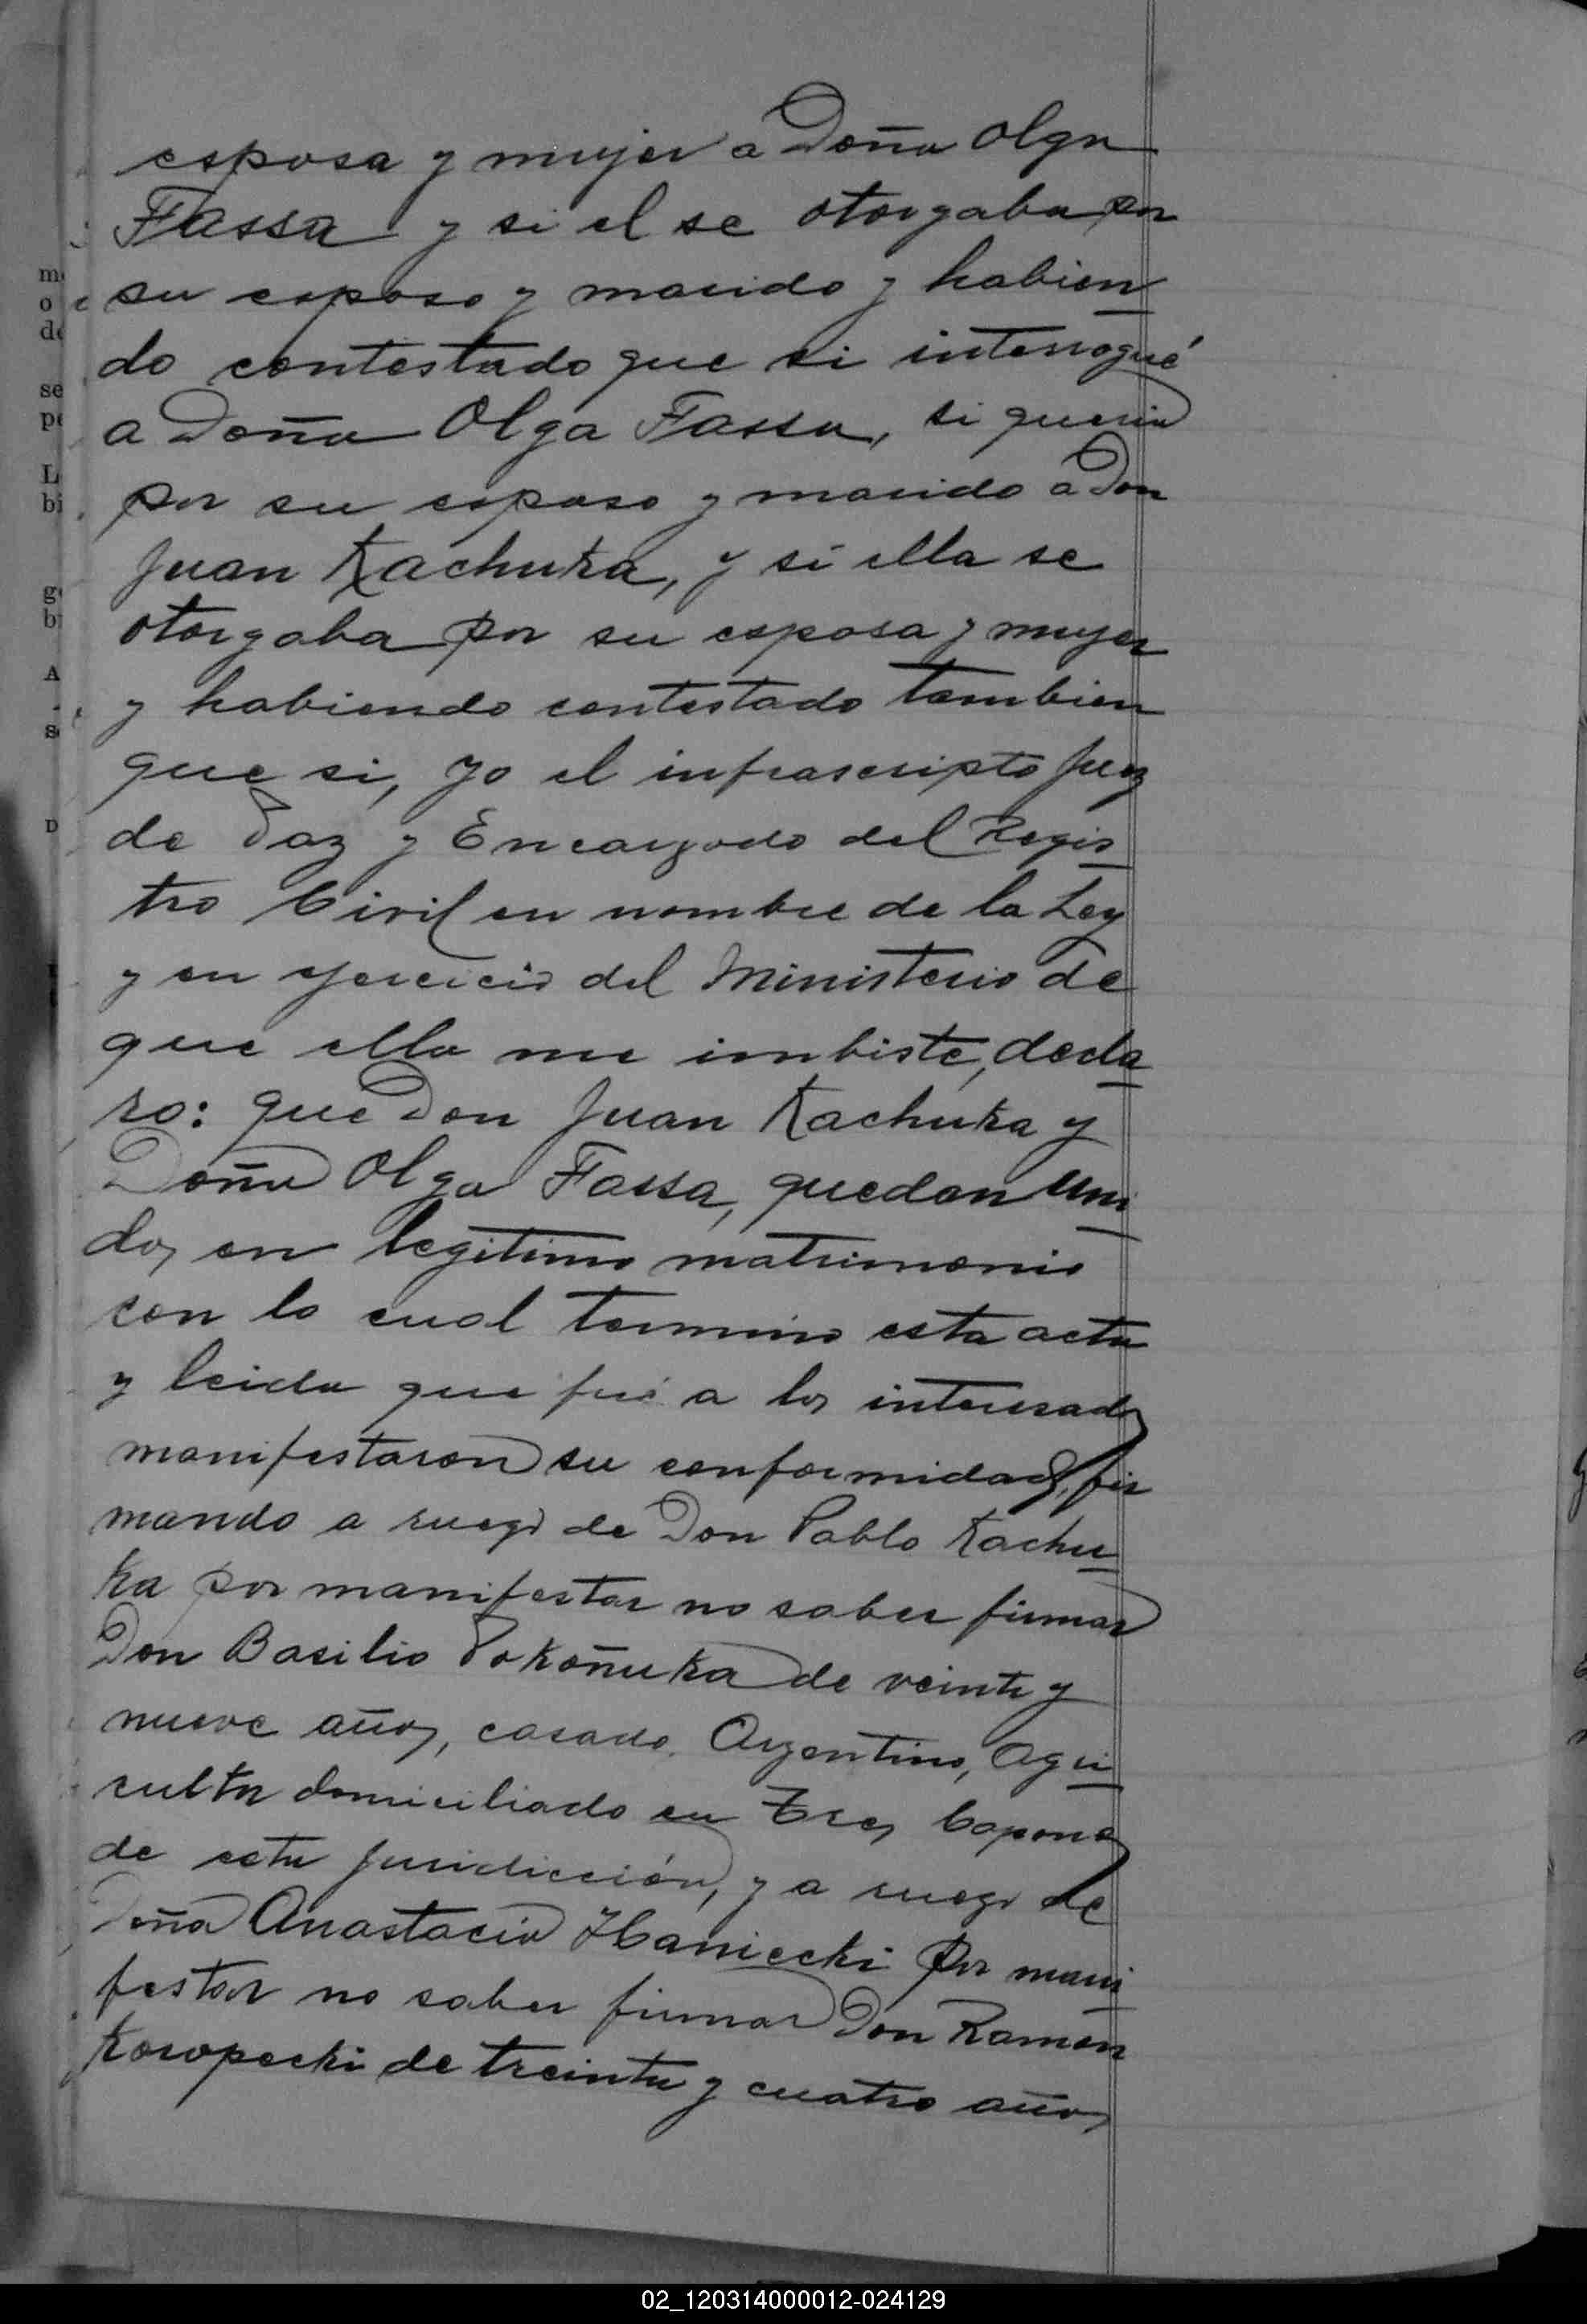 esposa y mujer a Doña Olga
Fassa y si el se otorgaba por
su esposo y marido y habien
do contestado que si interrogué
a Doña Olga Fassa, si queria
por su esposo y marido a Don
Juan Kachuka, y si ella se
otorgaba por su esposa y mujer
y habiendo contestado tambien
que si, yo el infrascripto Juez
de Paz y Encargado del Regis
tro Civil en nombre de la Ley
y en ejercicio del Ministerio de
que ella me imbiste, decla
ro: que Don Juan Kachuka y
Doña Olga Fassa, quedan uni
dos en legitimo matrimonio
con lo cual termino esta acta
y leida que fué a los interesados
manifestaron su conformidad, fir
mando a ruego de Don Pablo Kachu
ka por manifestar no saber firmar
Don Basilio Pokoñuka de veinte y
nueve años, casado, Argentino, Agri
cultor domiciliado en Tres Capones
de esta jurisdicción, y a ruego de
Doña Anastacia por mani
festar no saber firmar Don Ramón
Koropecki de treinta y cuatro años
02_120314000012-024129